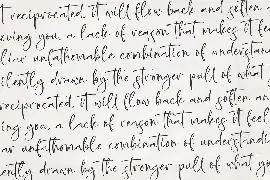 t reciprocated, it will flow back and soften
oving you, a lack of reason that makes it fee
liar unfathomable combination of understan
ilently drawn by the stronger pull of what
reciprocated, it will flow back and soften an
ing you, a lack of reason that makes it feel
ar unfathomable combination of understandi
ently drawn by the stronger pull of what yo